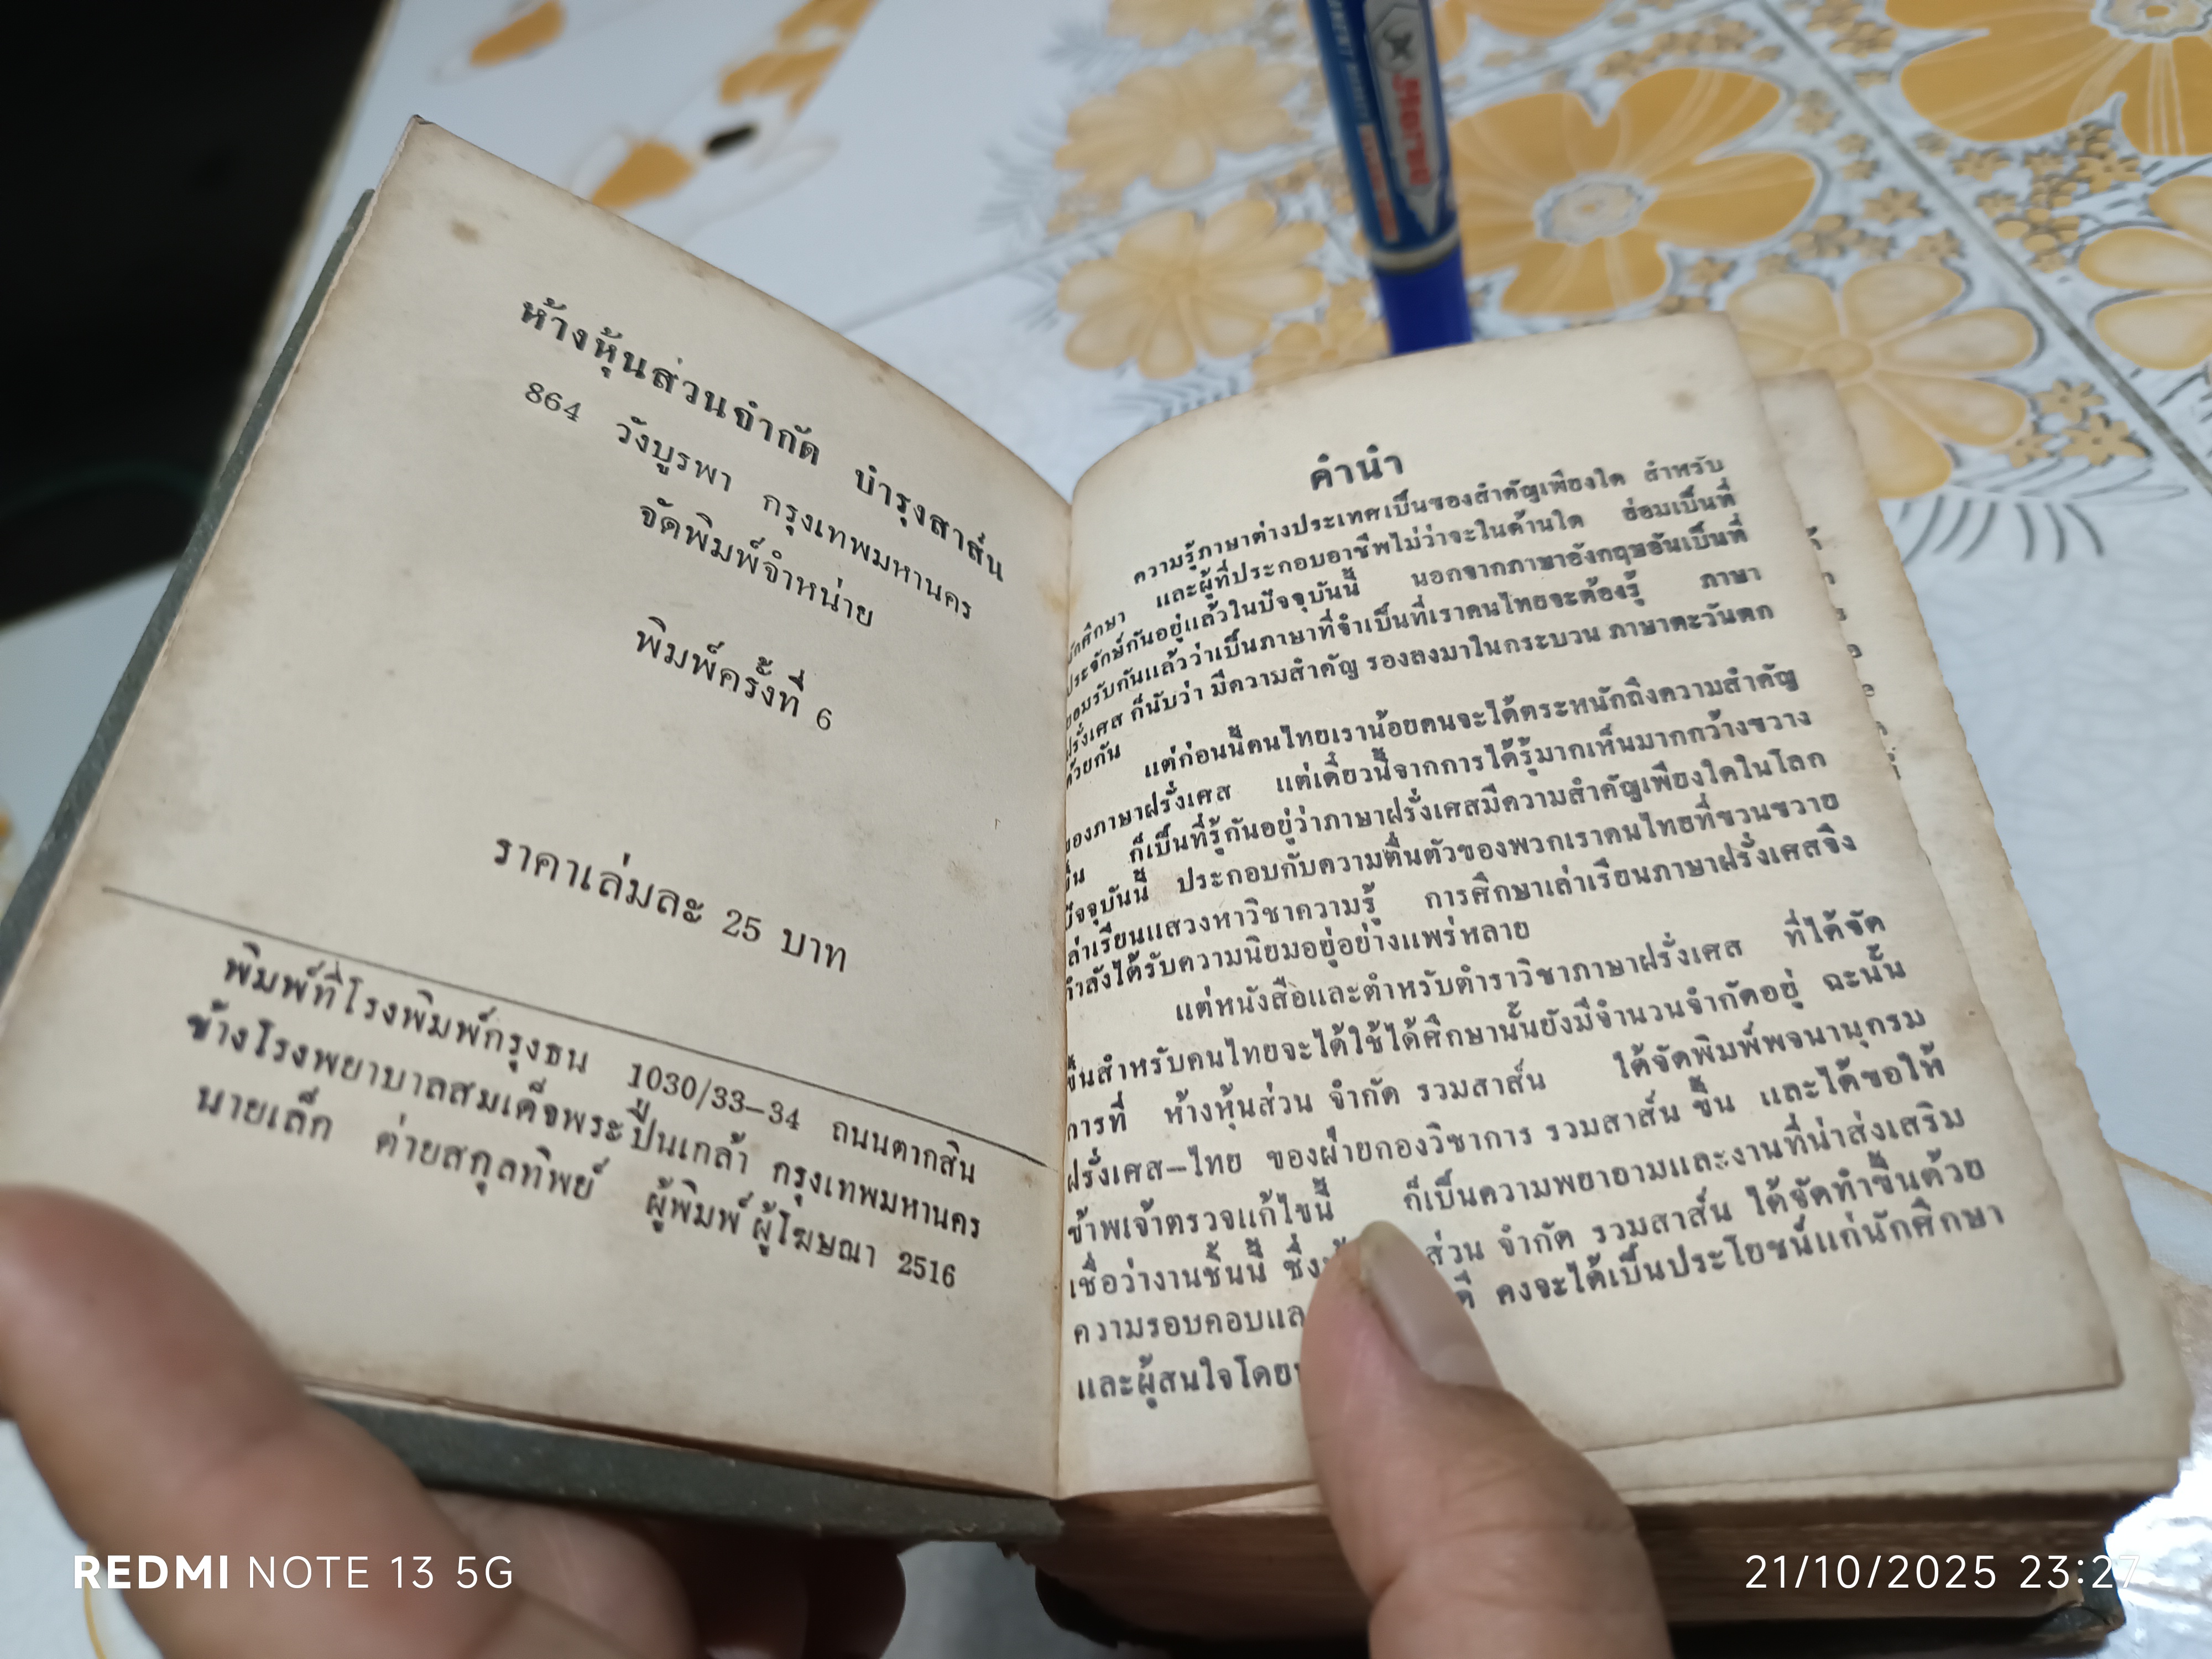 ห้างหุ้นส่วนจำกัด บำรุงสาส์น
864 วังบูรพา กรุงเทพมหานคร
จัดพิมพ์จำหน่าย
พิมพ์ครั้งที่ 6
ราคาเล่มละ 25 บาท
พิมพ์ที่โรงพิมพ์กรุงธน 1030/33-34 ถนนตากสิน
ข้างโรงพยาบาลสมเด็จพระปิ่นเกล้า กรุงเทพมหานคร
นายเล็ก ต่ายสกุลทิพย์ ผู้พิมพ์ ผู้โฆษณา 2516
คำนำ
ความรู้ภาษาต่างประเทศเป็นของสำคัญเพียงใด สำหรับ
นักศึกษา และผู้ที่ประกอบอาชีพไม่ว่าจะในด้านใด ย่อมเป็นที่
ประจักษ์กันอยู่แล้วในปัจจุบันนี้ นอกจากภาษาอังกฤษอันเป็นที่
ยอมรับกันแล้วว่าเป็นภาษาที่จำเป็นที่เราคนไทยจะต้องรู้ ภาษา
ฝรั่งเศส ก็นับว่า มีความสำคัญ รองลงมาในกระบวน ภาษาตะวันตก
ด้วยกัน
แต่ก่อนนี้คนไทยเราน้อยคนจะได้ตระหนักถึงความสำคัญ
ของภาษาฝรั่งเศส แต่เดี๋ยวนี้จากการได้รู้มากเห็นมากกว้างขวาง
ขึ้น ก็เป็นที่รู้กันอยู่ว่าภาษาฝรั่งเศสมีความสำคัญเพียงใดในโลก
ปัจจุบันนี้ ประกอบกับความตื่นตัวของพวกเราคนไทยที่ขวนขวาย
เล่าเรียนแสวงหาวิชาความรู้ การศึกษาเล่าเรียนภาษาฝรั่งเศสจึง
กำลังได้รับความนิยมอยู่อย่างแพร่หลาย
แต่หนังสือและตำหรับตำราวิชาภาษาฝรั่งเศส ที่ได้จัด
ขึ้นสำหรับคนไทยจะได้ใช้ได้ศึกษานั้นยังมีจำนวนจำกัดอยู่ ฉะนั้น
การที่ ห้างหุ้นส่วน จำกัด รวมสาส์น ได้จัดพิมพ์พจนานุกรม
ฝรั่งเศส-ไทย ของฝ่ายกองวิชาการ รวมสาส์น ขึ้น และได้ขอให้
ข้าพเจ้าตรวจแก้ไขนี้ ก็เป็นความพยายามและงานที่น่าส่งเสริม
เชื่อว่างานชิ้นนี้ ซึ่ง ส่วน จำกัด รวมสาส์น ได้จัดทำขึ้นด้วย
ความรอบคอบและ ดี คงจะได้เป็นประโยชน์แก่นักศึกษา
และผู้สนใจโดย
REDMI NOTE 13 5G
21/10/2025 23:27